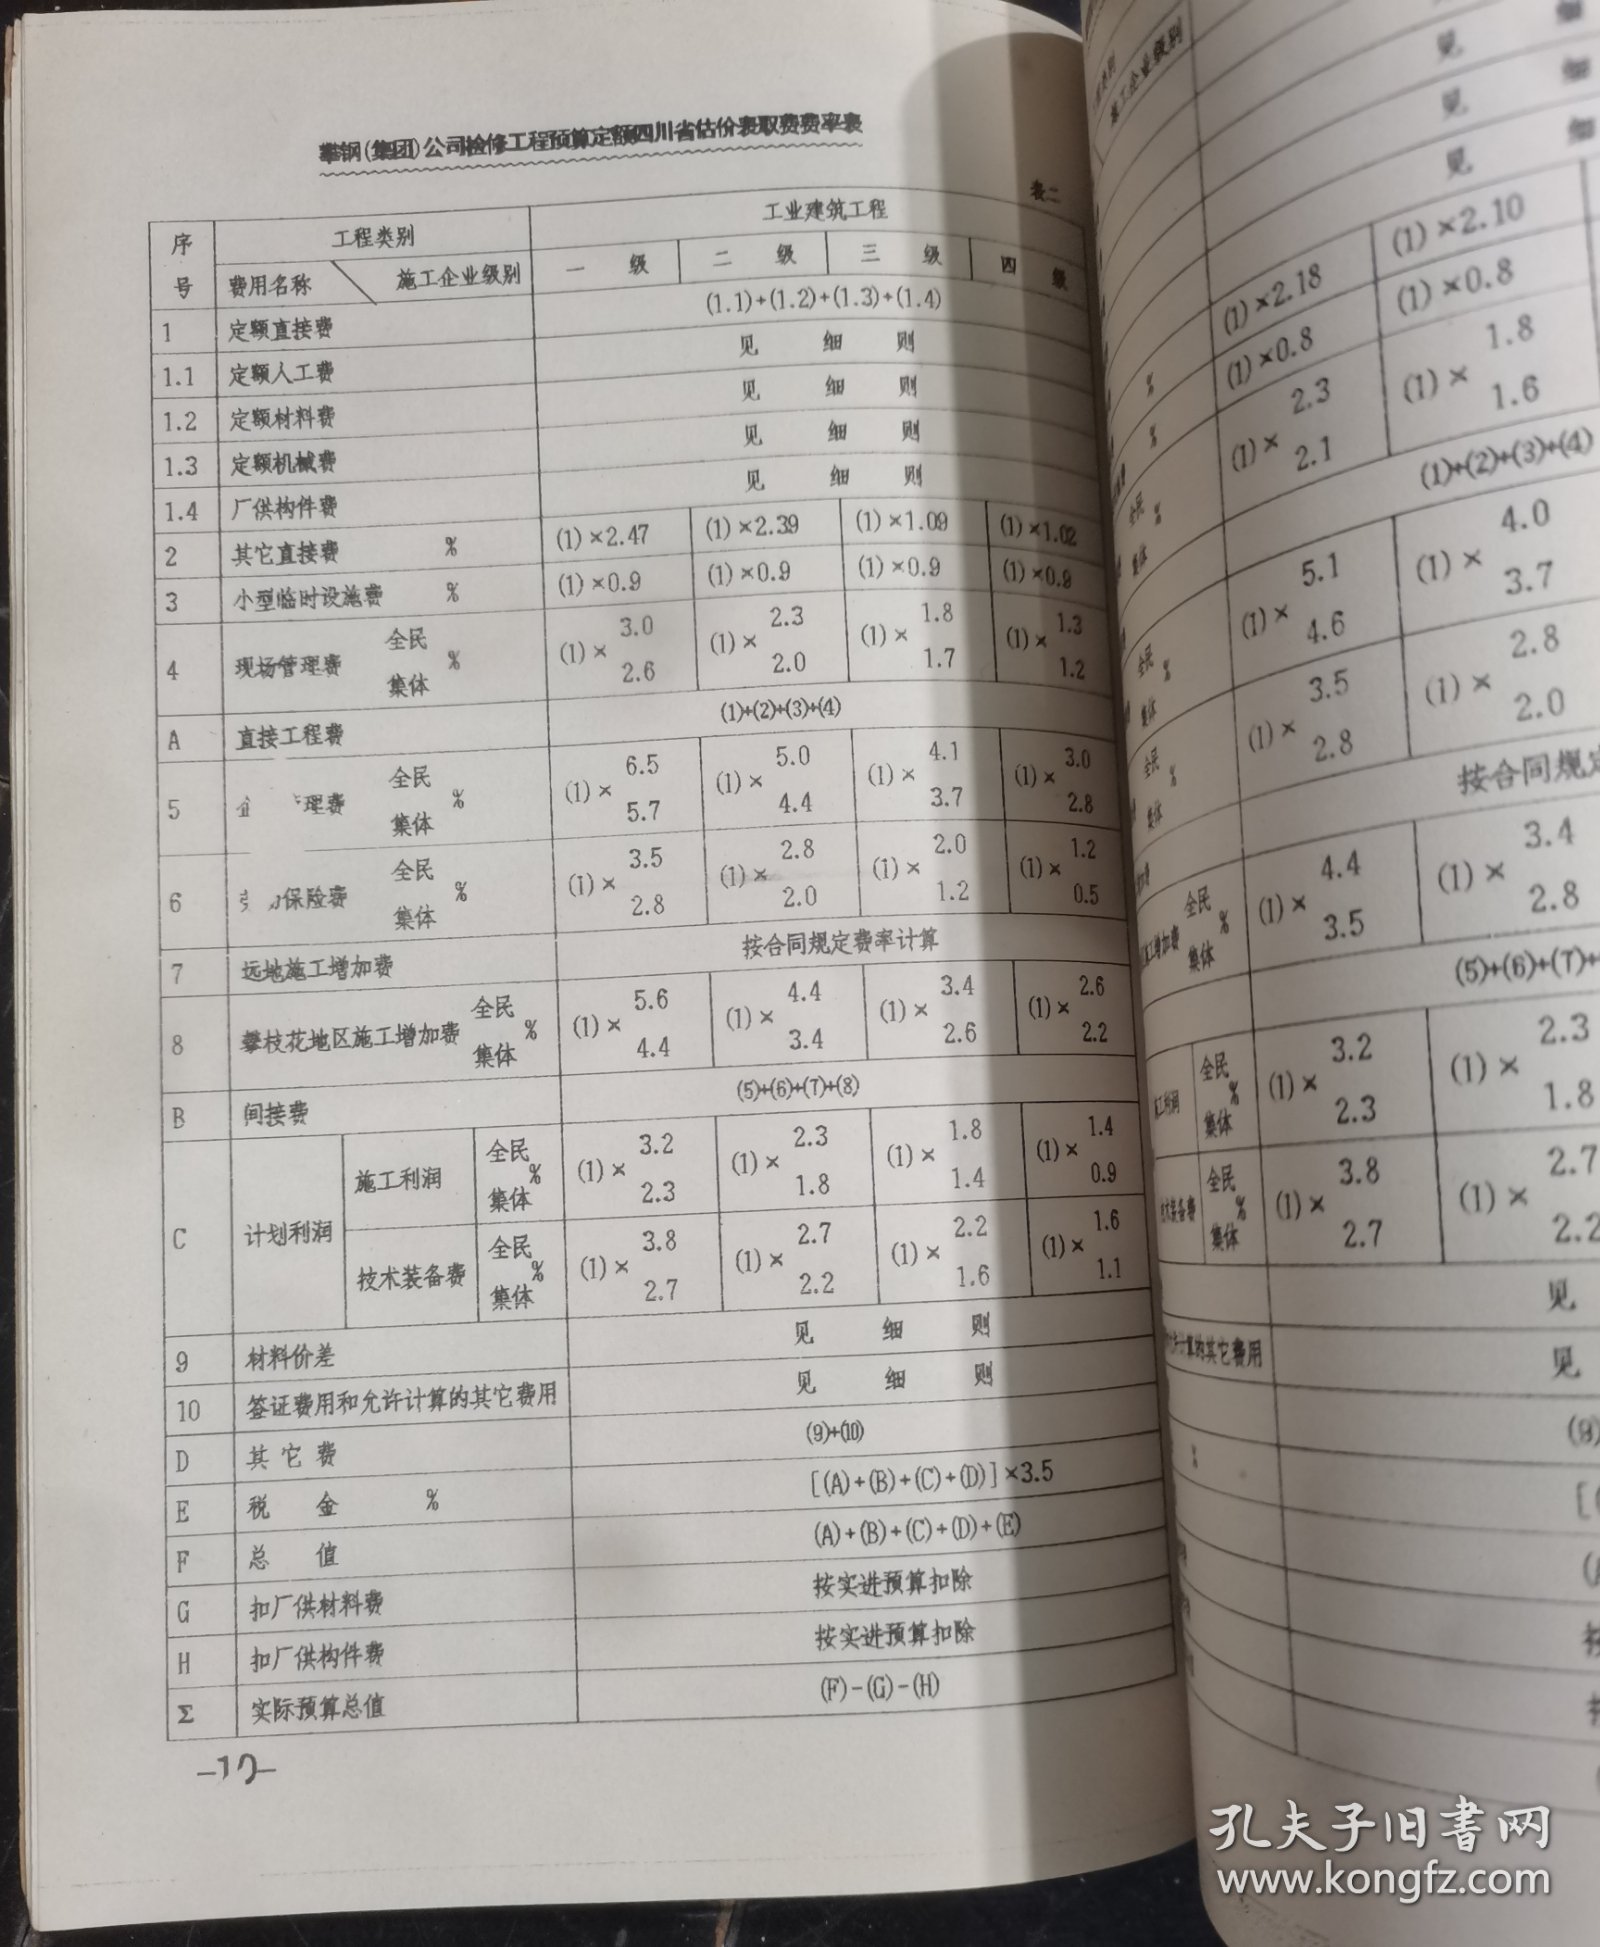 攀钢(集团)公司检修工程预算定额四川省估价表取费费率表
表二
序号 工程类别 工业建筑工程
费用名称 施工企业级别 一级 二级 三级 四级
1 定额直接费 (1.1)+(1.2)+(1.3)+(1.4)
1.1 定额人工费 见细则
1.2 定额材料费 见细则
1.3 定额机械费 见细则
1.4 厂供构件费 见细则
2 其它直接费 % (1)×2.47 (1)×2.39 (1)×1.09 (1)×1.02
3 小型临时设施费 % (1)×0.9 (1)×0.9 (1)×0.9 (1)×0.9
4 现场管理费 全民 % (1)× 3.0 (1)× 2.3 (1)× 1.8 (1)× 1.3
集体 2.6 2.0 1.7 1.2
A 直接工程费 (1)+(2)+(3)+(4)
5 理费 全民 % (1)× 6.5 (1)× 5.0 (1)× 4.1 (1)× 3.0
集体 5.7 4.4 3.7 2.8
6 保险费 全民 % (1)× 3.5 (1)× 2.8 (1)× 2.0 (1)× 1.2
集体 2.8 2.0 1.2 0.5
7 远地施工增加费 按合同规定费率计算
8 攀枝花地区施工增加费 全民 % (1)× 5.6 (1)× 4.4 (1)× 3.4 (1)× 2.6
集体 4.4 3.4 2.6 2.2
B 间接费 (5)+(6)+(7)+(8)
C 计划利润 施工利润 全民 % (1)× 3.2 (1)× 2.3 (1)× 1.8 (1)× 1.4
集体 2.3 1.8 1.4 0.9
技术装备费 全民 % (1)× 3.8 (1)× 2.7 (1)× 2.2 (1)× 1.6
集体 2.7 2.2 1.6 1.1
9 材料价差 见细则
10 签证费用和允许计算的其它费用 见细则
D 其它费 (9)+(10)
E 税金 % [(A)+(B)+(C)+(D)]×3.5
F 总值 (A)+(B)+(C)+(D)+(E)
G 扣厂供材料费 按实进预算扣除
H 扣厂供构件费 按实进预算扣除
Σ 实际预算总值 (F)-(G)-(H)
施工企业级别
见
见
见
(1)×2.18 (1)×2.10
% (1)×0.8 (1)×0.8
% (1)× 2.3 (1)× 1.8
2.1 1.6
全民 %
集体
(1)+(2)+(3)+(4)
(1)× 5.1 (1)× 4.0
4.6 3.7
全民 %
集体
(1)× 3.5 (1)× 2.8
2.8 2.0
全民 %
集体
按合同规定
工增加费 全民 % (1)× 4.4 (1)× 3.4
集体 3.5 2.8
(5)+(6)+(7)+
工利润 全民 % (1)× 3.2 (1)× 2.3
集体 2.3 1.8
术装备费 全民 % (1)× 3.8 (1)× 2.7
集体 2.7 2.2
见
计算的其它费用 见
(9)
%
孔夫子旧书网
www.kongfz.com